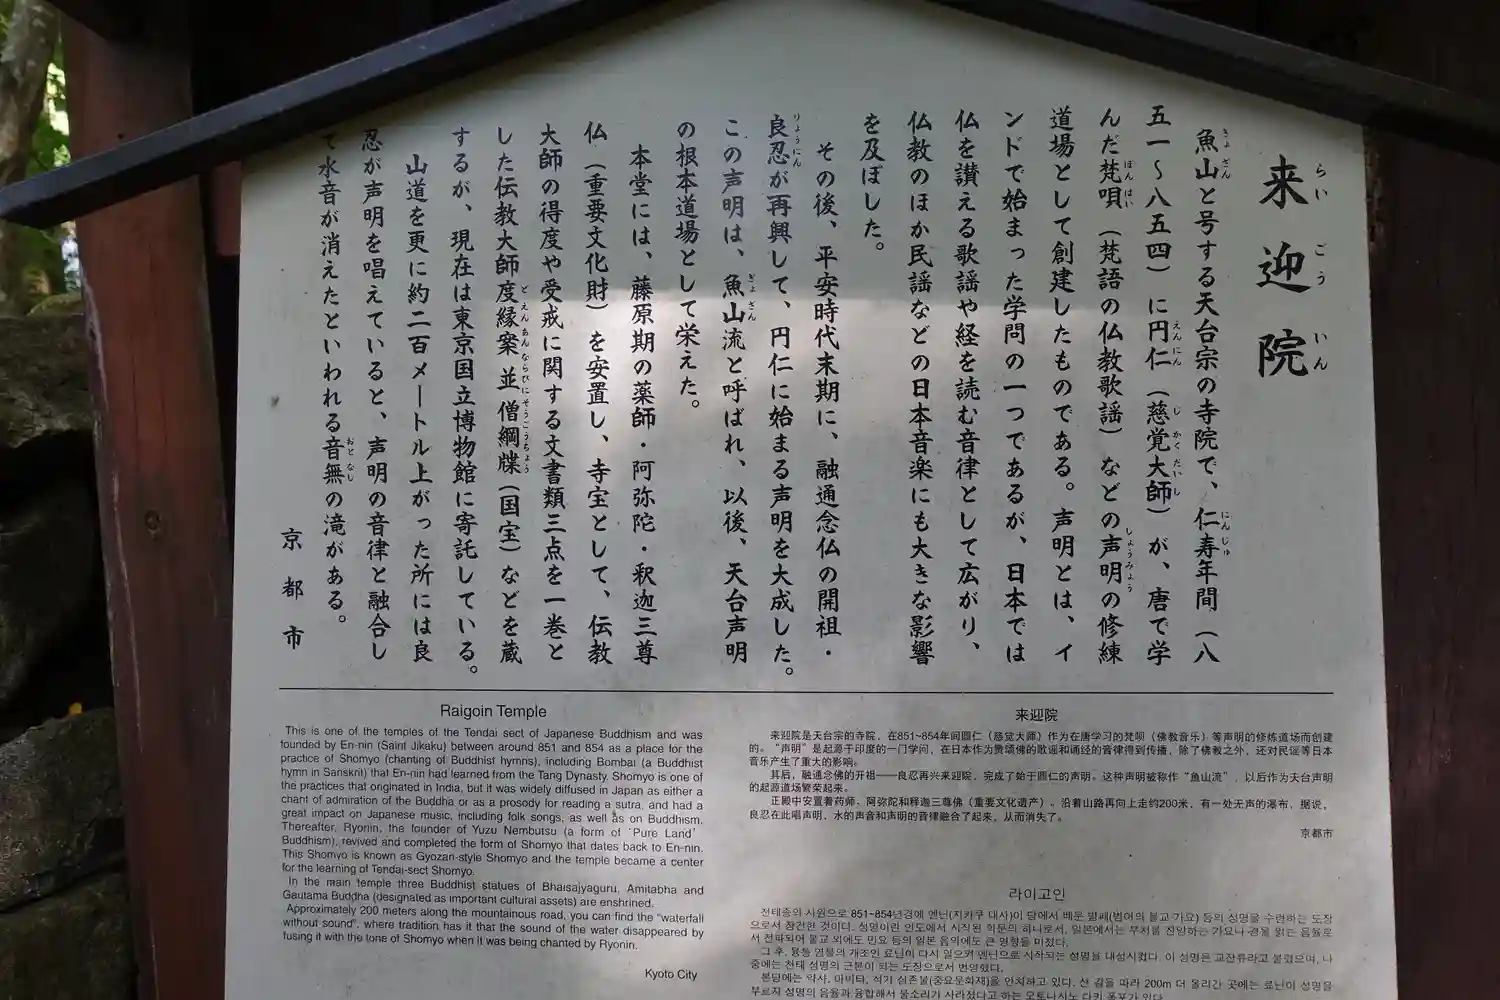 来迎院
らいごういん
魚山と号する天台宗の寺院で、仁寿年間(八
五一〜八五四)に円仁(慈覚大師)が、唐で学
んだ梵唄(梵語の仏教歌謡)などの声明の修練
道場として創建したものである。声明とは、イ
ンドで始まった学問の一つであるが、日本では
仏を讃える歌謡や経を読む音律として広がり、
仏教のほか民謡などの日本音楽にも大きな影響
を及ぼした。
その後、平安時代末期に、融通念仏の開祖・
良忍が再興して、円仁に始まる声明を大成した。
この声明は、魚山流と呼ばれ、以後、天台声明
の根本道場として栄えた。
本堂には、藤原期の薬師・阿弥陀・釈迦三尊
仏(重要文化財)を安置し、寺宝として、伝教
大師の得度や受戒に関する文書類三点を一巻と
した伝教大師度縁案並僧綱牒(国宝)などを蔵
するが、現在は東京国立博物館に寄託している。
山道を更に約二百メートル上がった所には良
忍が声明を唱えていると、声明の音律と融合し
て水音が消えたといわれる音無の滝がある。
京都市
Raigoin Temple
This is one of the temples of the Tendai sect of Japanese Buddhism and was
founded by En-nin (Saint Jikaku) between around 851 and 854 as a place for the
practice of Shomyo (chanting of Buddhist hymns), including Bombai (a Buddhist
hymn in Sanskrit) that En-nin had learned from the Tang Dynasty. Shomyo is one of
the practices that originated in India, but it was widely diffused in Japan as either a
chant of admiration of the Buddha or as a prosody for reading a sutra, and had a
great impact on Japanese music, including folk songs, as well as on Buddhism.
Thereafter, Ryonin, the founder of Yuzu Nembutsu (a form of 'Pure Land'
Buddhism), revived and completed the form of Shomyo that dates back to En-nin.
This Shomyo is known as Gyozan-style Shomyo and the temple became a center
for the learning of Tendai-sect Shomyo.
In the main temple three Buddhist statues of Bhaisajyaguru, Amitabha and
Gautama Buddha (designated as important cultural assets) are enshrined.
Approximately 200 meters along the mountainous road, you can find the "waterfall
without sound", where tradition has it that the sound of the water disappeared by
fusing it with the tone of Shomyo when it was being chanted by Ryonin.
Kyoto City
来迎院
来迎院是天台宗的寺院，在851~854年间圆仁（慈觉大师）作为在唐学习的梵呗（佛教音乐）等声明的修炼道场而创建
的。"声明"是起源于印度的一门学问，在日本作为赞颂佛的歌谣和诵经的音律得到传播，除了佛教之外，还对民谣等日本
音乐产生了重大的影响。
其后，融通念佛的开祖——良忍再兴来迎院，完成了始于圆仁的声明。这种声明被称作"鱼山流"，以后作为天台声明
的起源道场繁荣起来。
正殿中安置着药师、阿弥陀和释迦三尊佛（重要文化遗产）。沿着山路再向上走约200米，有一处无声的瀑布，据说，
良忍在此唱声明，水的声音和声明的音律融合了起来，从而消失了。
京都市
라이고인
천태종의 사원으로 851~854년경에 엔닌(지카쿠 대사)이 당에서 배운 범패(범어의 불교 가요) 등의 성명을 수련하는 도장
으로서 창건한 것이다. 성명이란 인도에서 시작된 학문의 하나로서, 일본에서는 부처를 찬양하는 가요나 경을 읽는 음율로
서 전파되어 불교 외에도 민요 등의 일본 음악에도 큰 영향을 미쳤다.
그 후, 융통 염불의 개조인 료닌이 다시 일으켜 엔닌으로 시작되는 성명을 대성시켰다. 이 성명은 교잔류라고 불렸으며, 나
중에는 천태 성명의 근본이 되는 도장으로서 번영했다.
본당에는 약사, 아미타, 석가 삼존불(중요문화재)을 안치하고 있다. 산 길을 따라 200m 더 올라간 곳에는 료닌이 성명을
부르자 성명의 음율과 융합해서 물소리가 사라졌다고 하는 오토나시노 다키 폭포가 있다.